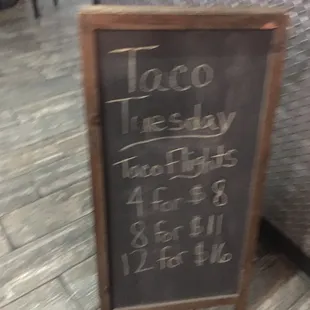 Taco
Tuesday
Taco Flights
4 for $8
8 for $11
12 for $16